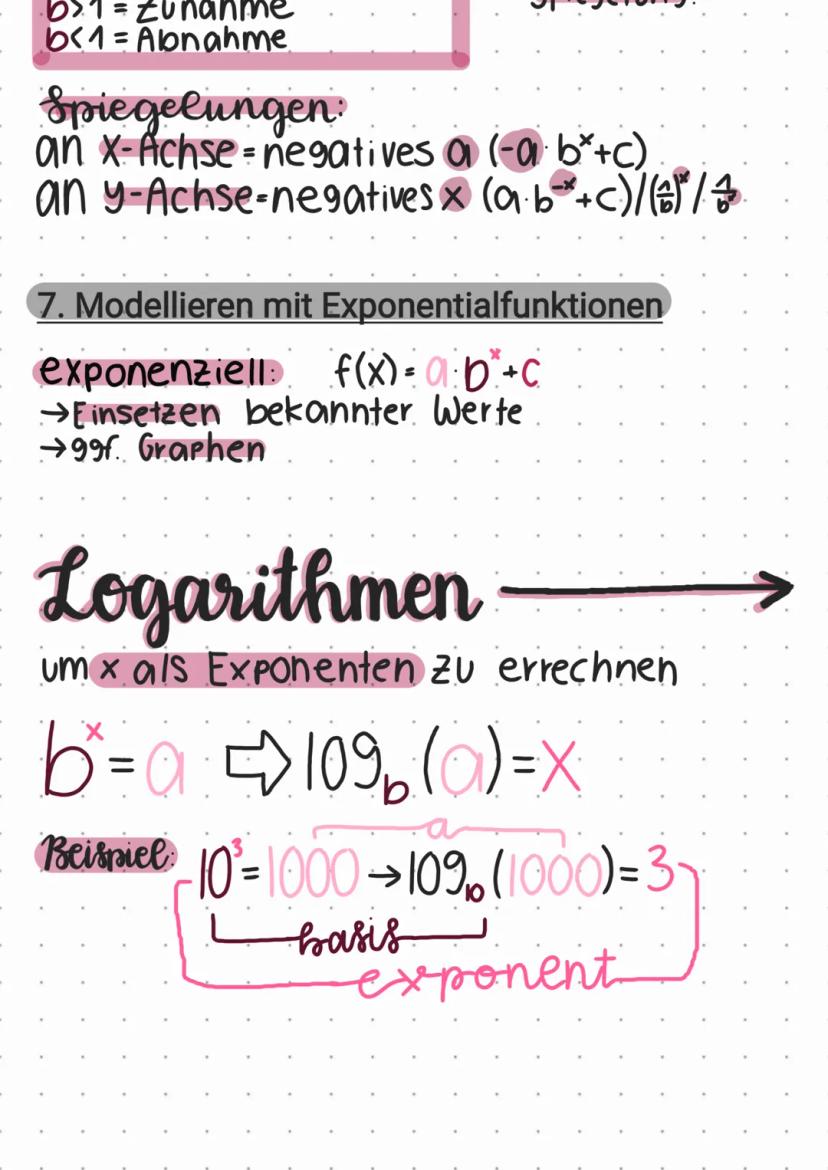 b>1 = Zunahme
b<1 = Abnahme
Spiegelung.
Spiegelungen:
an x-Achse = negatives a (-a · bˣ+c)
an y-Achse = negatives x (a·b⁻ˣ+c)/(1/b)ˣ/1/bˣ
7. Modellieren mit Exponentialfunktionen
exponenziell: f(x) = a·bˣ+c
→Einsetzen bekannter Werte
→ggf. Graphen
Logarithmen
um x als Exponenten zu errechnen
bˣ = a ⇨ log_b (a) = x
a
Beispiel: 10³ = 1000 → log₁₀ (1000) = 3
basis
exponent